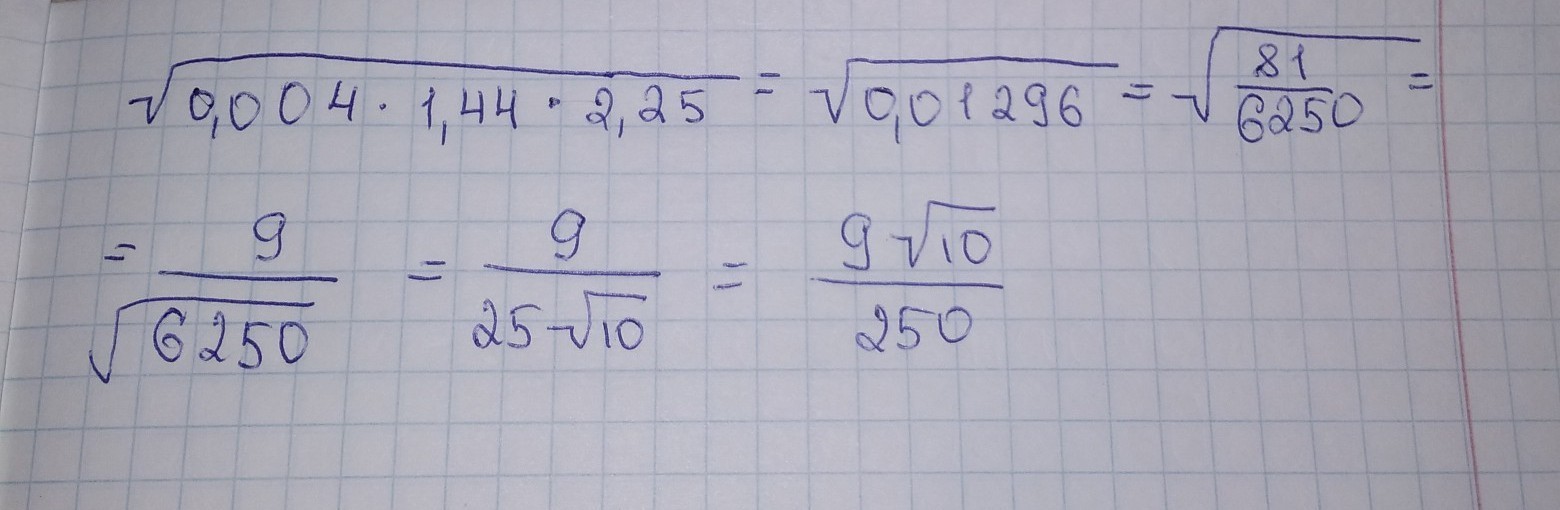 √0,004 · 1,44 · 2,25 = √0,01296 = √81/6250 =
= 9/√6250 = 9/25√10 = 9√10/250